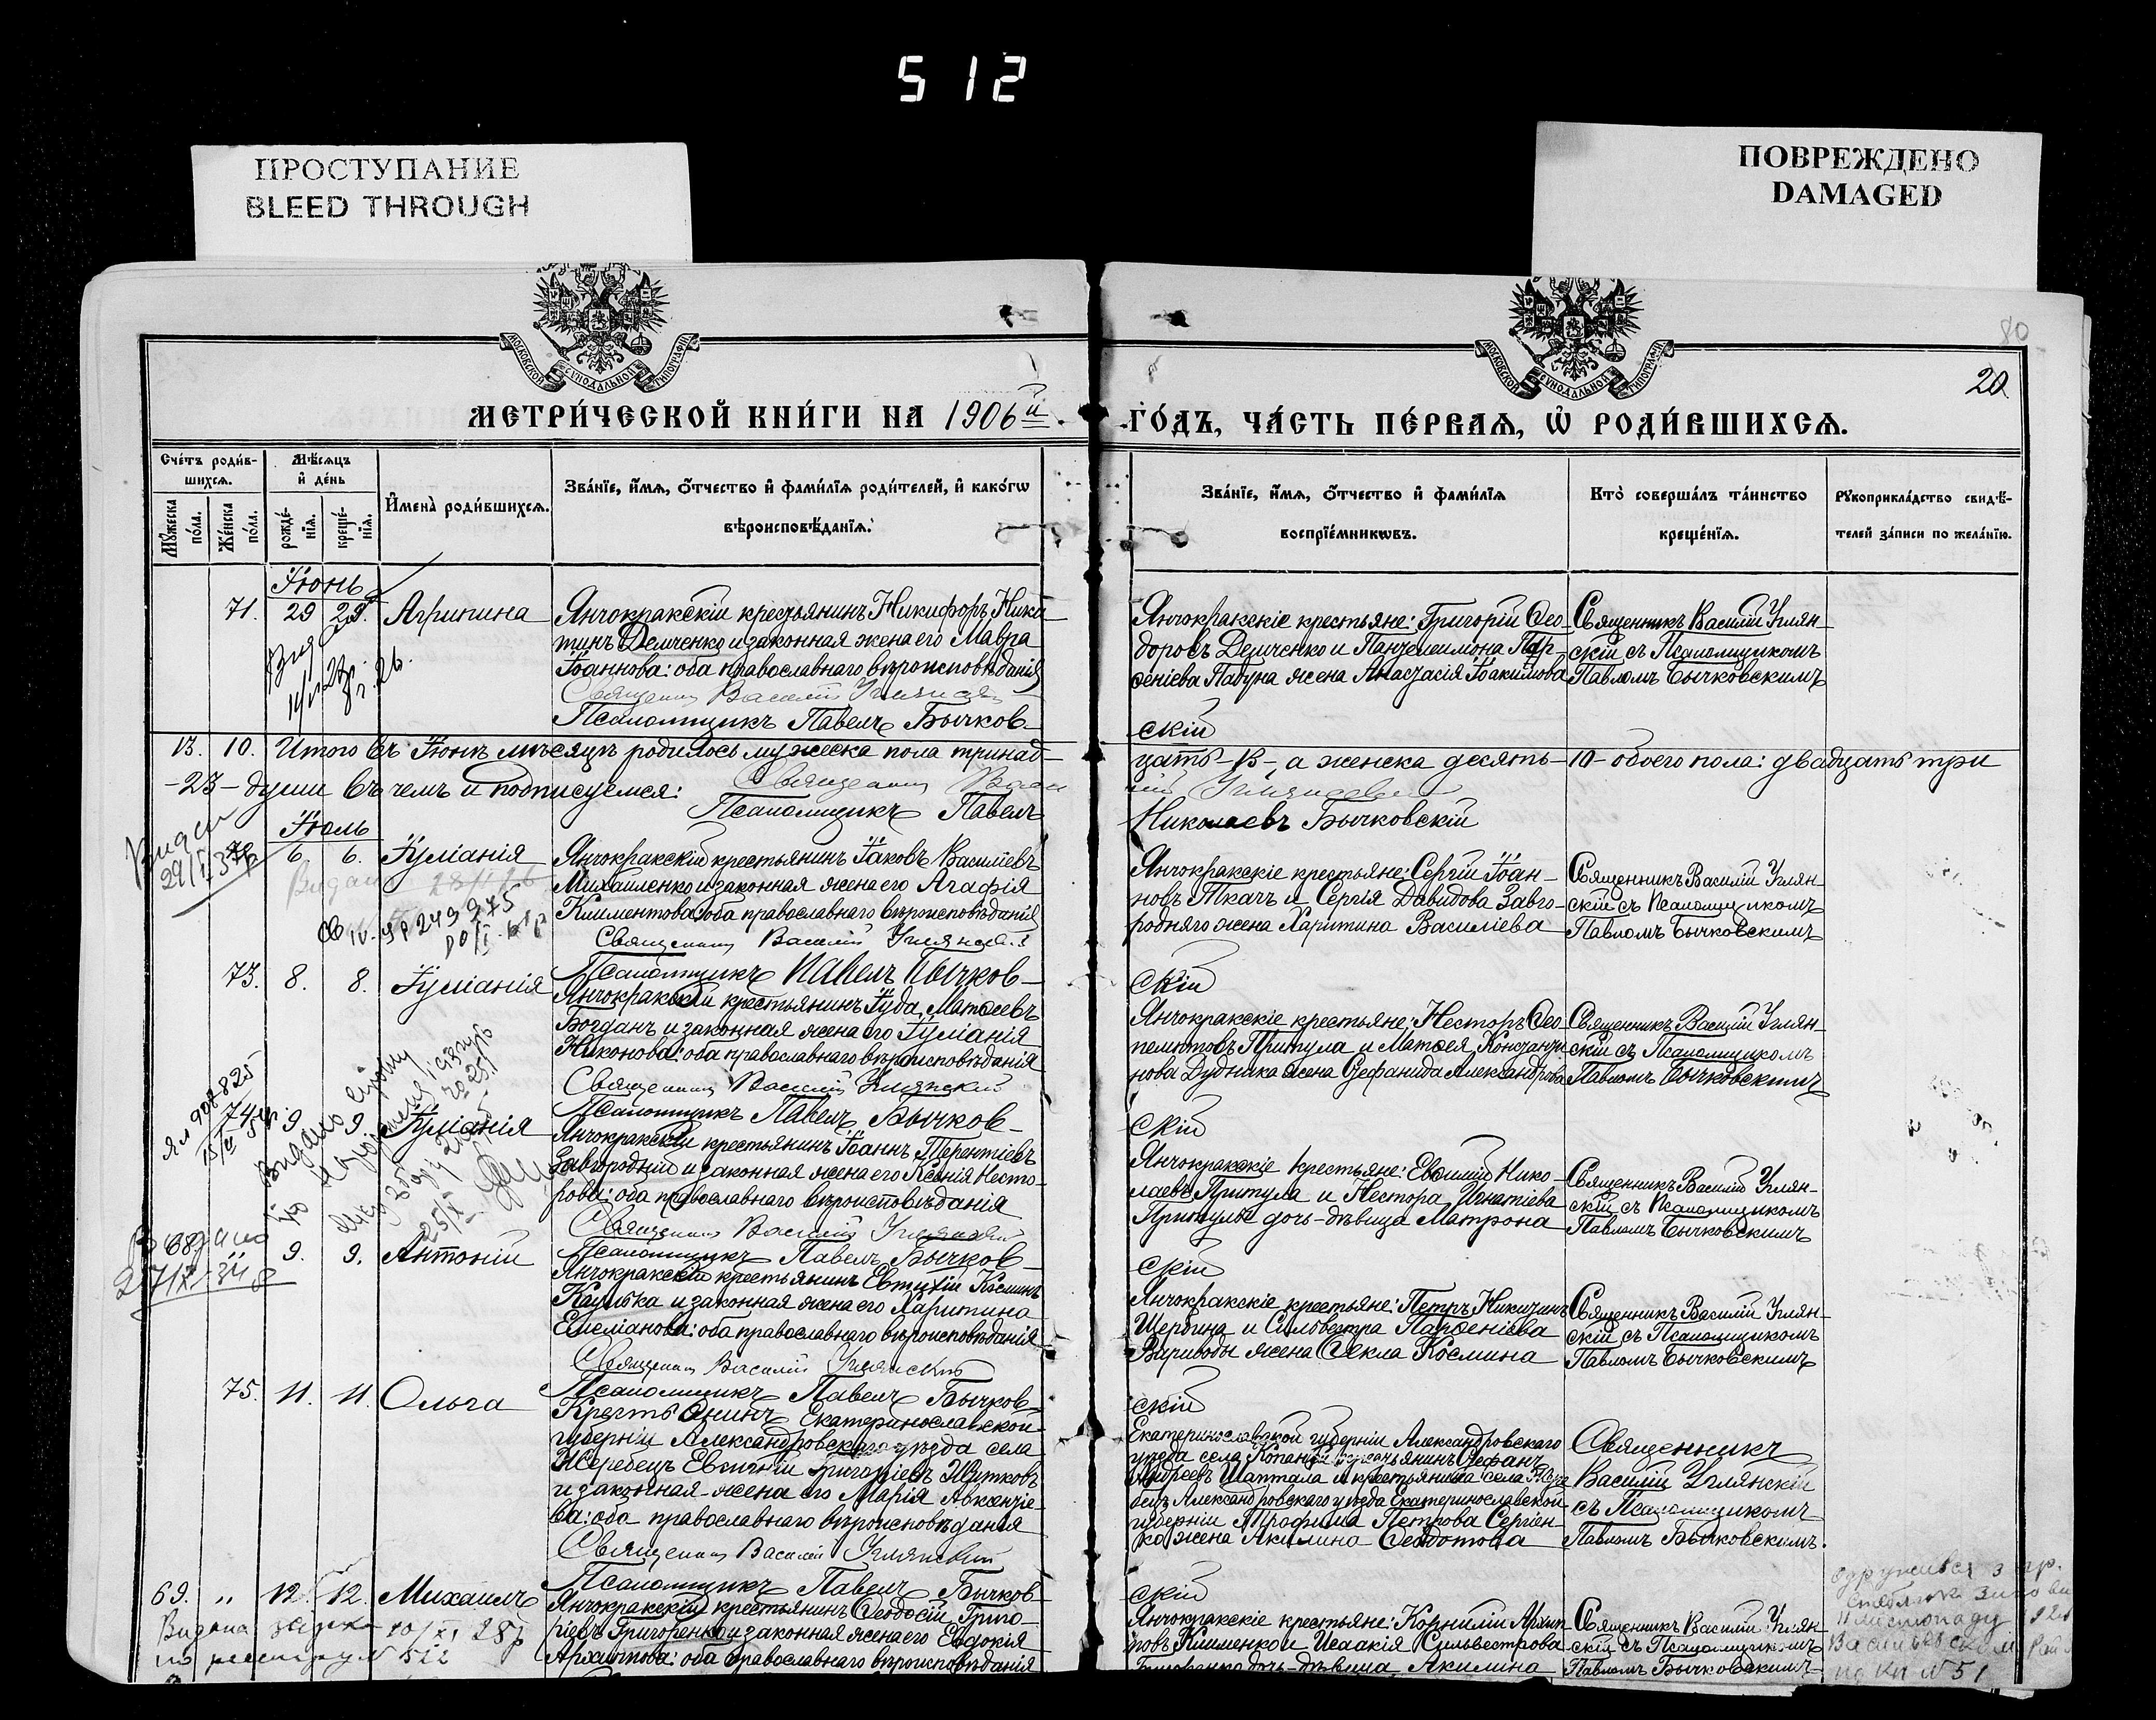 512
ПРОСТУПАНИЕ
BLEED THROUGH
ПОВРЕЖДЕНО
DAMAGED
МОСКОВСКОЙ СѴНОДАЛЬНОЙ ТИПОГРАФІИ
МОСКОВСКОЙ СѴНОДАЛЬНОЙ ТИПОГРАФІИ
80
20
МЕТРИ́ЧЕСКОЙ КНИ́ГИ НА 1906й
ГО́ДЪ, ЧА́СТЬ ПЕ́РВАѦ, Ѡ҆ РОДИ́ВШИХСѦ.
Сче́тъ роди́в-
шихсѧ.
Мꙋ́жеска по́ла.
Же́нска по́ла.
Мѣ́сѧцъ
и҆ де́нь
рожде́-
нїѧ.
креще́-
нїѧ.
И҆мена̀ роди́вшихсѧ.
Зва́нїе, и҆́мѧ, ѻ҆́тчество и҆ фами́лїѧ роди́телей, и҆ како́гѡ
вѣроисповѣ́данїѧ.
Зва́нїе, и҆́мѧ, ѻ҆́тчество и҆ фами́лїѧ
воспрїе́мникѡвъ.
Кто̀ соверша́лъ та́инство
креще́нїѧ.
Рꙋкоприкла́дство свидѣ́-
телей за́писи по жела́нїю.
Іюнь
71. 29 29. Агрипина
Янчокракскій крестьянинъ Никифоръ Ники-
тинъ Демченко и законная жена его Мавра
Іоаннова: оба православнаго вѣроисповѣданія
Священникъ Василій Углянскій
Псаломщикъ Павелъ Бычков-
скій
Янчокракскіе крестьяне: Григорій Ѳео-
доровъ Демченко и Пантелеимона Пар-
ѳеніева жена Анастасія Іоакимова
Священникъ Василій Углян-
скій съ Псаломщикомъ
Павломъ Бычковскимъ
13. 10. Итого въ Іюнѣ мѣсяцѣ родилось мужеска пола тринад-
цать-13-, а женска десять-10-обоего пола: двадцать три
-23-души въ чемъ и подписуемся: Священникъ Васи-
лій Углянскій
Псаломщикъ Павелъ
Николаевъ Бычковскій
Іюль
6. 6. Іуліанія
Янчокракскій крестьянинъ Іаковъ Василіевъ
Михайленко и законная жена его Агафія
Климентова: оба православнаго вѣроисповѣданія
Священникъ Василій Углянскій
Псаломщикъ Павелъ Бычков-
скій
Янчокракскіе крестьяне: Сергій Іоан-
новъ Ткачъ и Сергія Давидова Завго-
родняго жена Харитина Василіева
Священникъ Василій Углян-
скій съ Псаломщикомъ
Павломъ Бычковскимъ
73. 8. 8. Іуліанія
Янчокракскій крестьянинъ Іуда Матѳеевъ
Богданъ и законная жена его Іуліанія
Никонова: оба православнаго вѣроисповѣданія
Священникъ Василій Углянскій
Псаломщикъ Павелъ Бычков-
скій
Янчокракскіе крестьяне: Несторъ Ѳео-
пемптовъ Притула и Матѳея Константи-
нова Дудника жена Стефанида Александрова
Священникъ Василій Углян-
скій съ Псаломщикомъ
Павломъ Бычковскимъ
74. 9 9. Іуліанія
Янчокракскій крестьянинъ Іоаннъ Терентіевъ
Завгородній и законная жена его Ксенія Несто-
рова: оба православнаго вѣроисповѣданія
Священникъ Василій Углянскій
Псаломщикъ Павелъ Бычков-
скій
Янчокракскіе крестьяне: Евѳимій Нико-
лаевъ Притула и Нестора Игнатіева
Притулы дочь-дѣвица Матрона
Священникъ Василій Углян-
скій съ Псаломщикомъ
Павломъ Бычковскимъ
68. 9. 9. Антоній
Янчокракскій крестьянинъ Евтихій Косминъ
и законная жена его Харитина
Емеліанова: оба православнаго вѣроисповѣданія
Священникъ Василій Углянскій
Псаломщикъ Павелъ Бычков-
скій
Янчокракскіе крестьяне: Петръ Никитинъ
Щербина и Силовестра Парѳеніева
жена Ѳекла Космина
Священникъ Василій Углян-
скій съ Псаломщикомъ
Павломъ Бычковскимъ
75. 11. 11. Ольга
Крестьянинъ Екатеринославской
губерніи Александровскаго уѣзда села
Жеребецъ Евгеній Григоріевъ Житковъ
и законная жена его Марія Авксентіе-
ва: оба православнаго вѣроисповѣданія
Священникъ Василій Углянскій
Псаломщикъ Павелъ Бычков-
скій
Екатеринославской губерніи Александровскаго
уѣзда села Копаней крестьянинъ Стефанъ
Андреевъ Шаптала и крестьянина села Жере-
бецъ Александровскаго уѣзда Екатеринославской
губерніи Трофима Петрова Сергіен-
ка жена Акилина Ѳеодотова
Священникъ
Василій Углянскій
съ Псаломщикомъ
Павломъ Бычковскимъ.
69. " 12. 12. Михаилъ
Янчокракскій крестьянинъ Ѳеодосій Григо-
ріевъ Григоренко и законная жена его Евдокія
Архипова: оба православнаго вѣроисповѣданія
Янчокракскіе крестьяне: Корнилій Архип-
повъ Клименко и Исаакія Сильвестрова
Григоренко дочь-дѣвица Акилина
Священникъ Василій Углян-
скій съ Псаломщикомъ
Павломъ Бычковскимъ
10/XI 28р
по реестру N 522
N 51